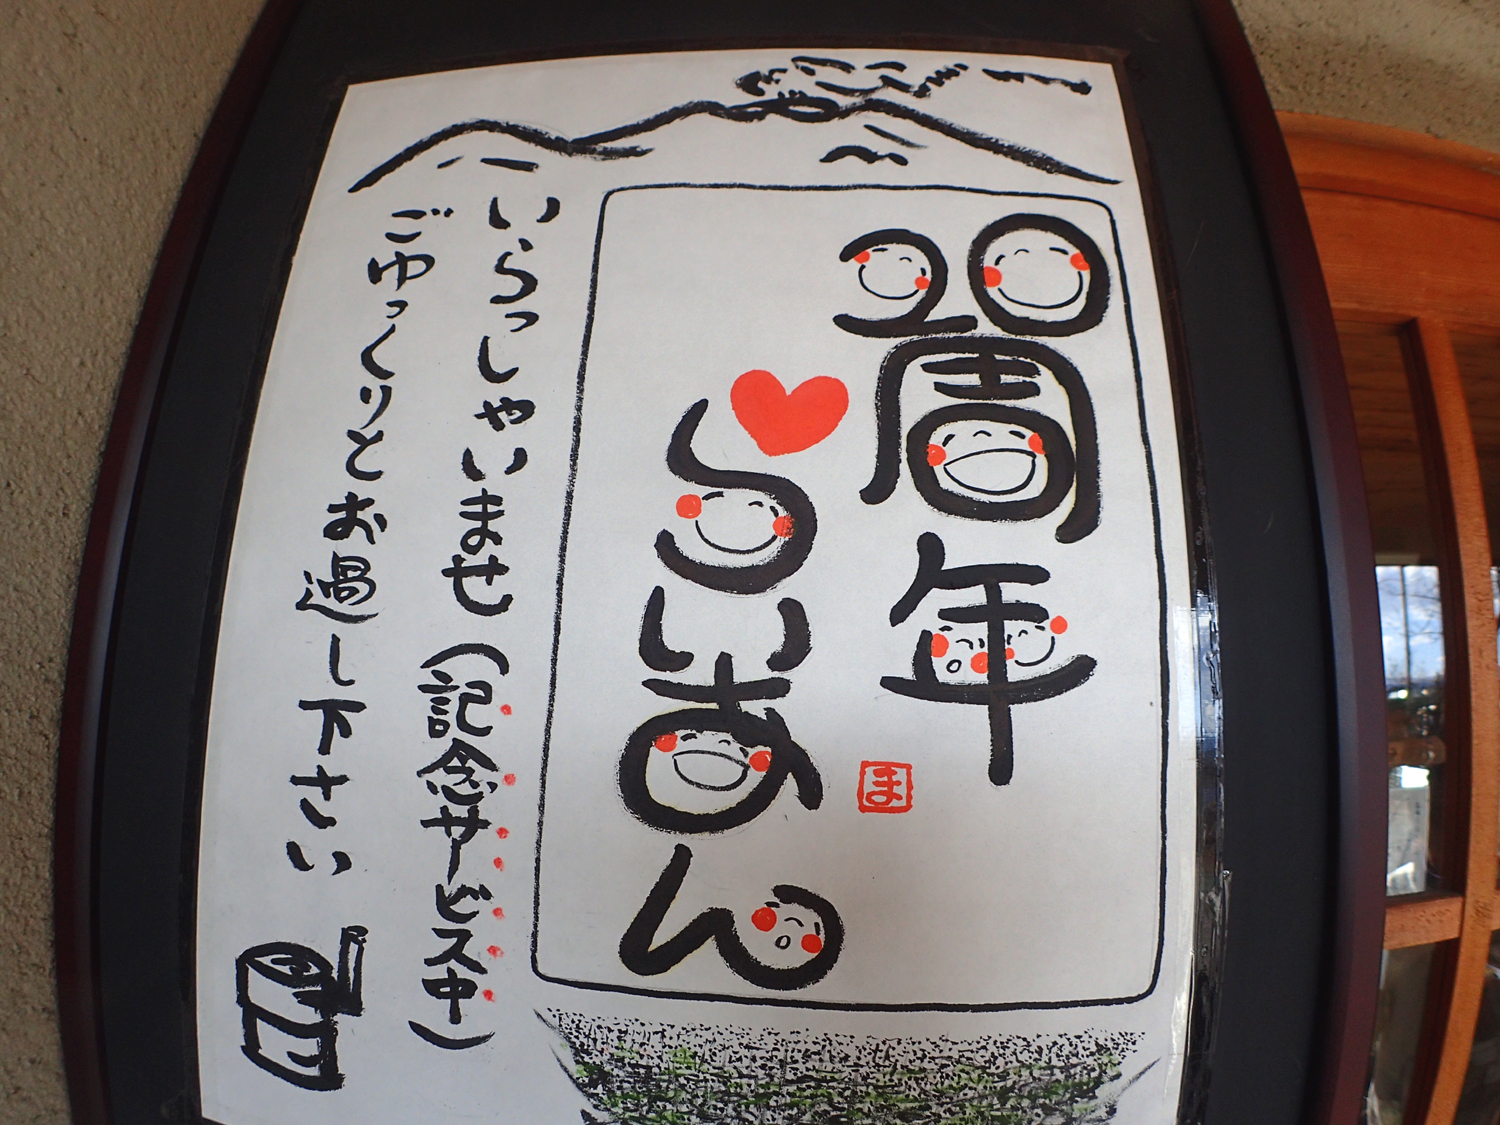 20周年
らいおん
ま
いらっしゃいませ（記念サービス中）
ごゆっくりとお過し下さい